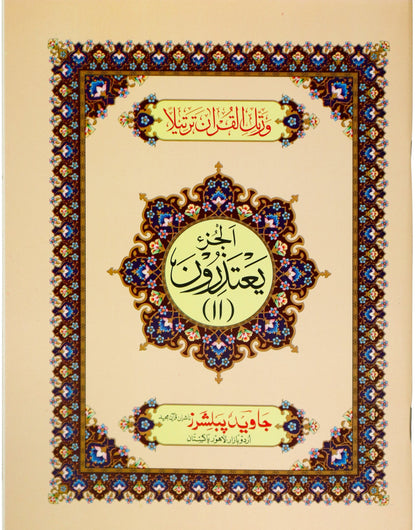 ورتل القرآن ترتیلا
الجزء
یَعْتَذِرُوْنَ
(۱۱)
جاوید پبلشرز ناشران قرآن مجید
اردو بازار لاهور پاکستان